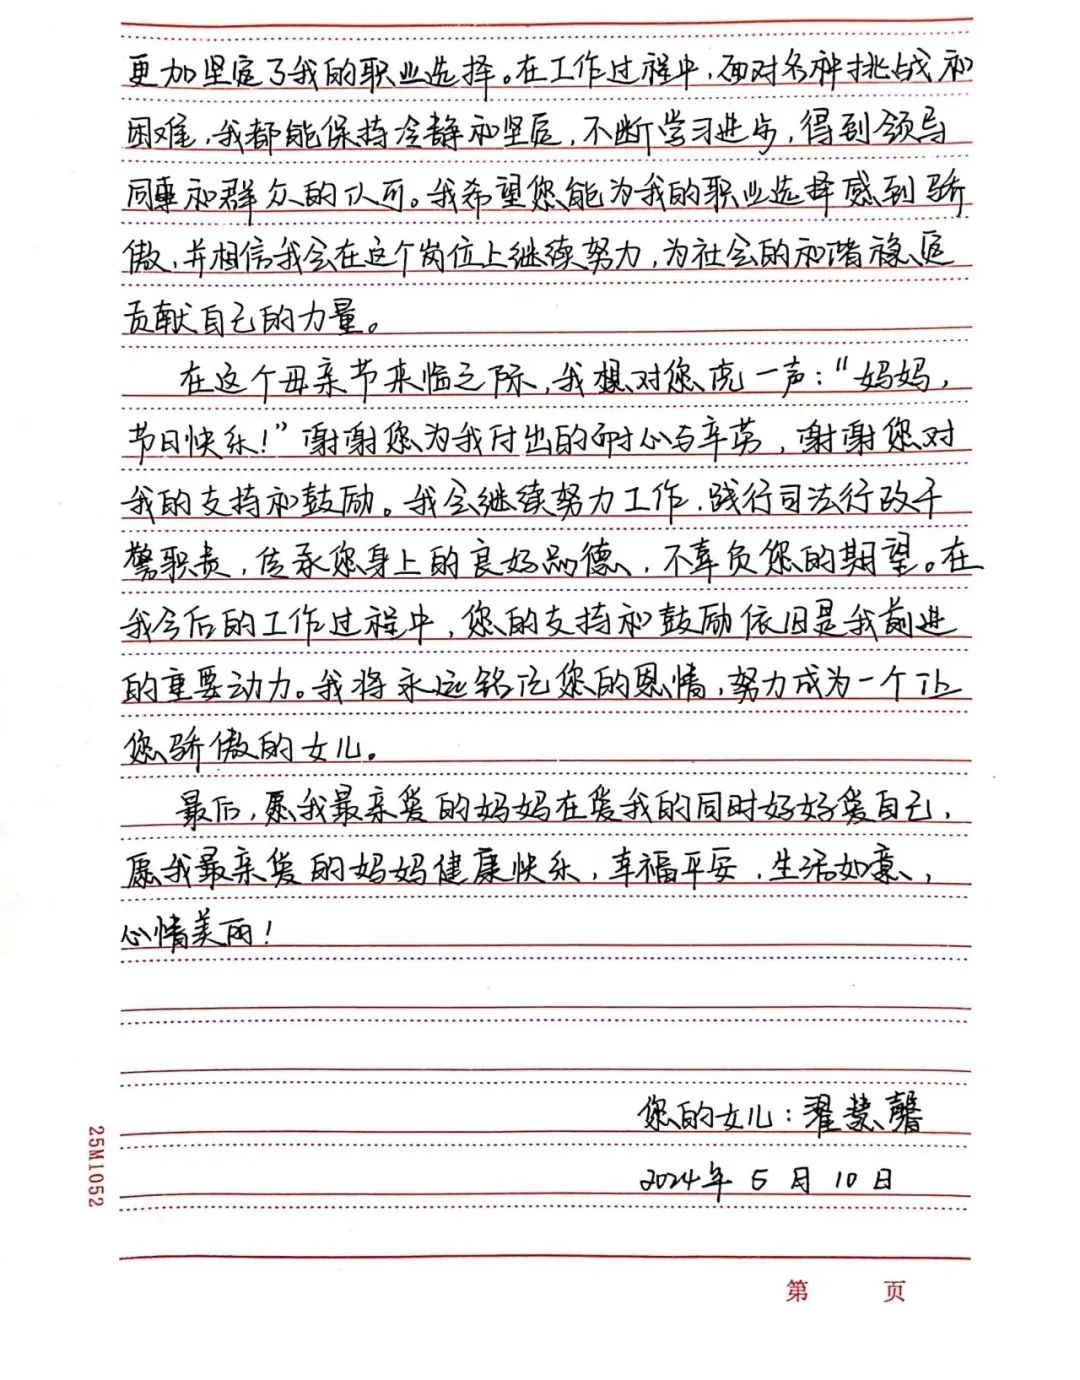 更加坚定了我的职业选择。在工作过程中，面对各种挑战和
困难，我都能保持冷静和坚定，不断学习进步，得到领导
同事和群众的认可。我希望您能为我的职业选择感到骄
傲，并相信我会在这个岗位上继续努力，为社会的和谐稳定
贡献自己的力量。
在这个母亲节来临之际，我想对您说一声：“妈妈，
节日快乐！”谢谢您为我付出的耐心与辛劳，谢谢您对
我的支持和鼓励。我会继续努力工作，践行司法行政干
警职责，传承您身上的良好品德，不辜负您的期望。在
我今后的工作过程中，您的支持和鼓励依旧是我前进
的重要动力。我将永远铭记您的恩情，努力成为一个让
您骄傲的女儿。
最后，愿我最亲爱的妈妈在爱我的同时好好爱自己，
愿我最亲爱的妈妈健康快乐，幸福平安，生活如意，
心情美丽！
您的女儿：翟慧馨
2024年5月10日
25M1052
第 页